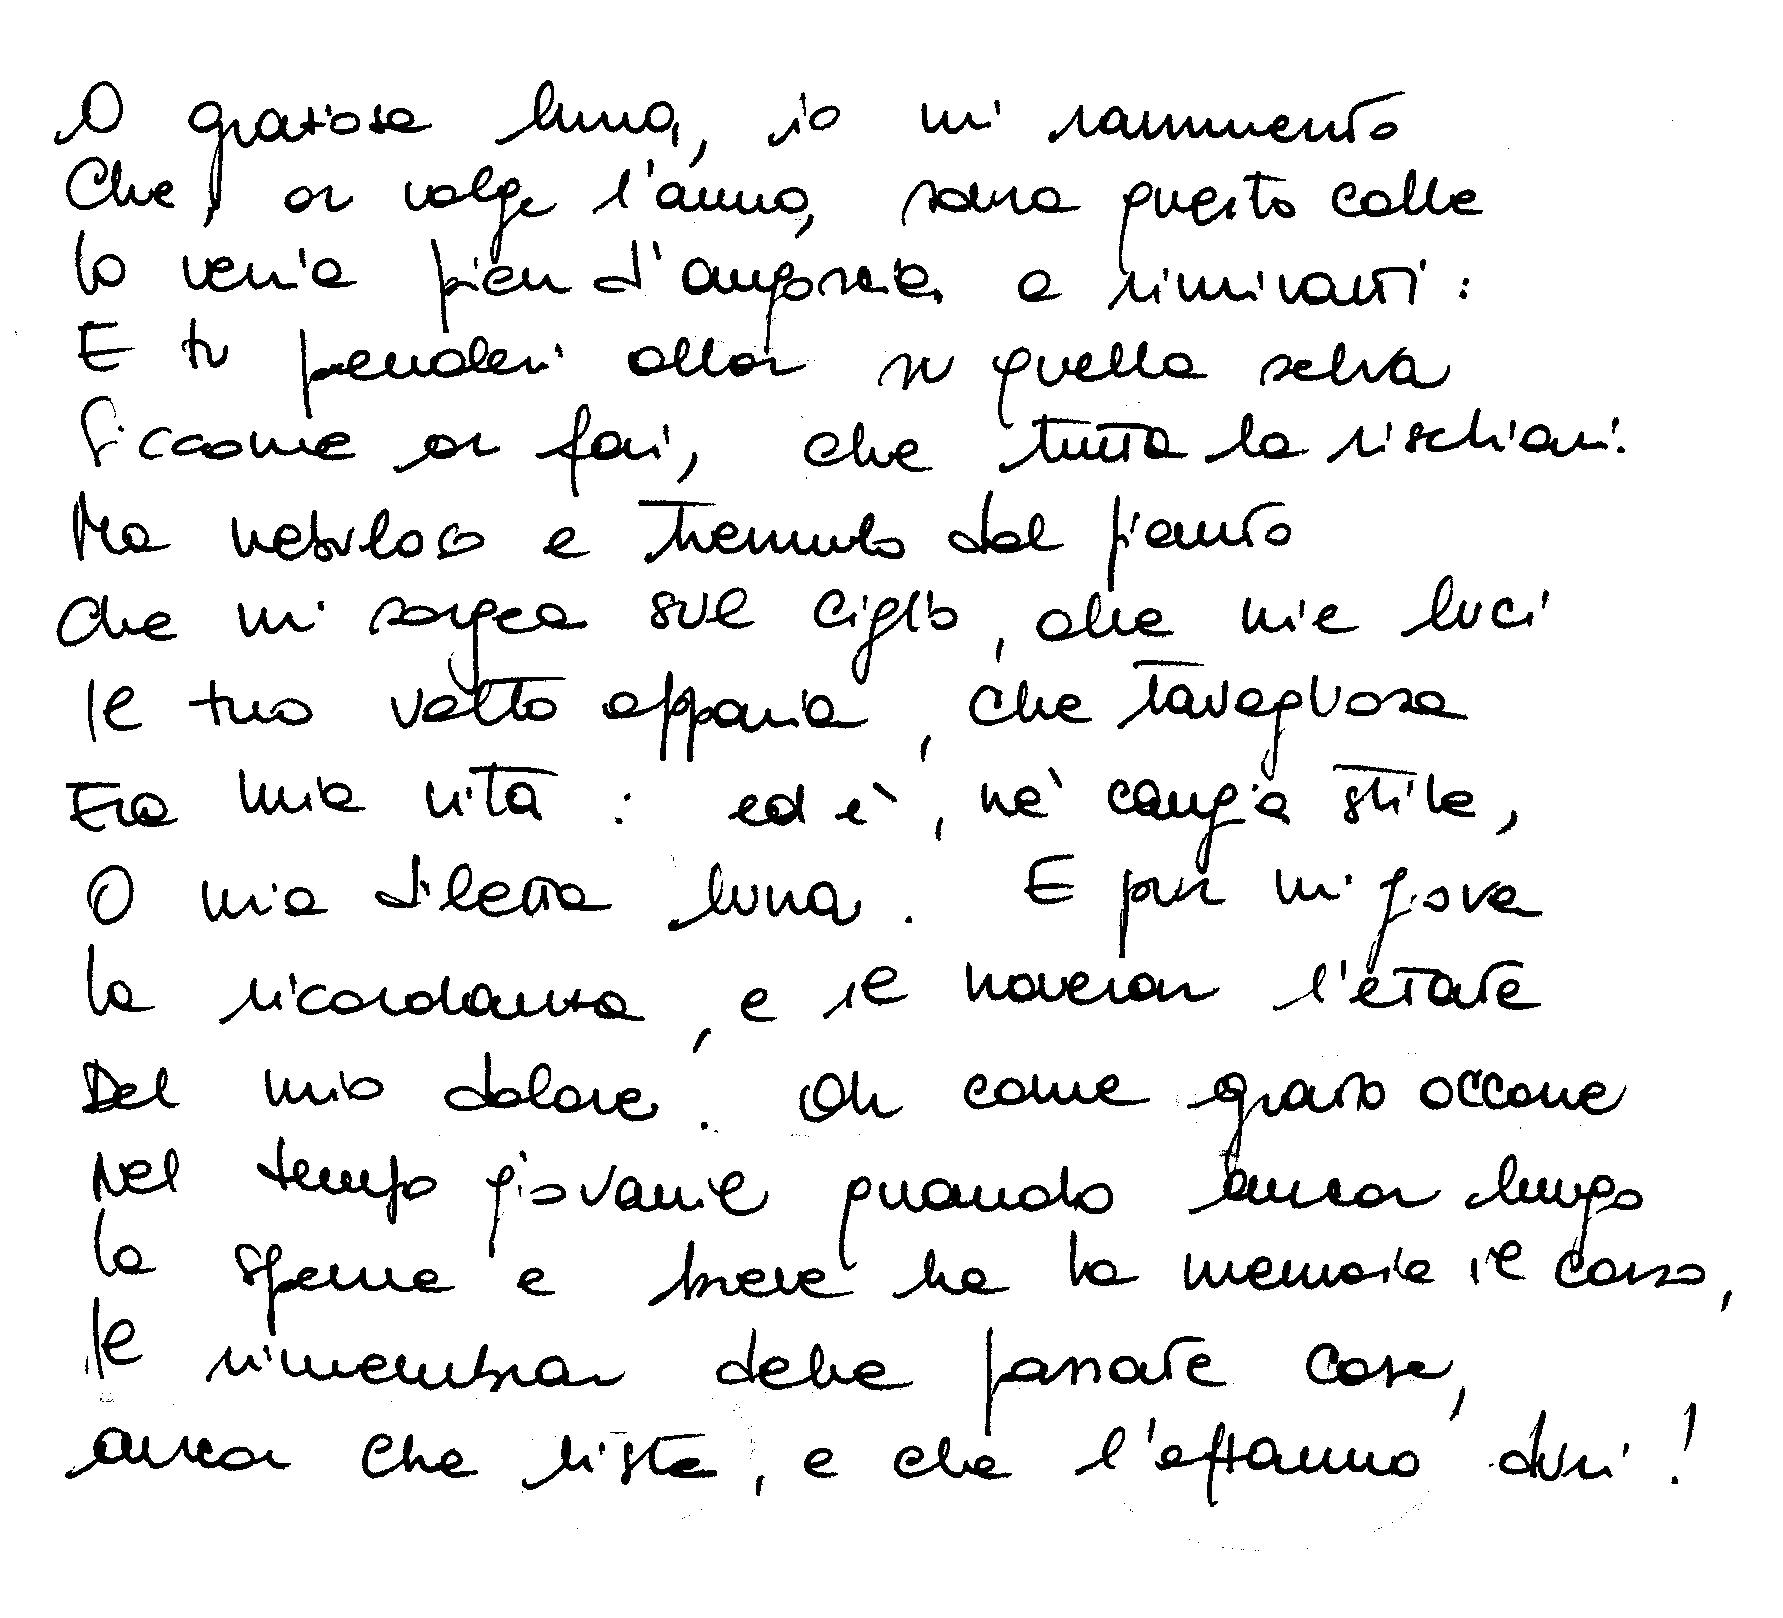 O graziosa luna, io mi rammento
Che, or volge l'anno, sovra questo colle
Io venia pien d'angoscia a rimirarti:
E tu pendevi allor su quella selva
Siccome or fai, che tutta la rischiari.
Ma nebuloso e tremulo dal pianto
Che mi sorgea sul ciglio, che mie luci
Il tuo volto apparia, che travagliosa
Era mia vita: ed è, né cangia stile,
O mia diletta luna. E pur mi giova
La ricordanza, e il noverar l'etate
Del mio dolore. Oh come grato occorre
Nel tempo giovanil quando ancor lungo
La speme e breve ha la memoria il corso,
Il rimembrar delle passate cose,
ancor che triste, e che l'affanno duri!